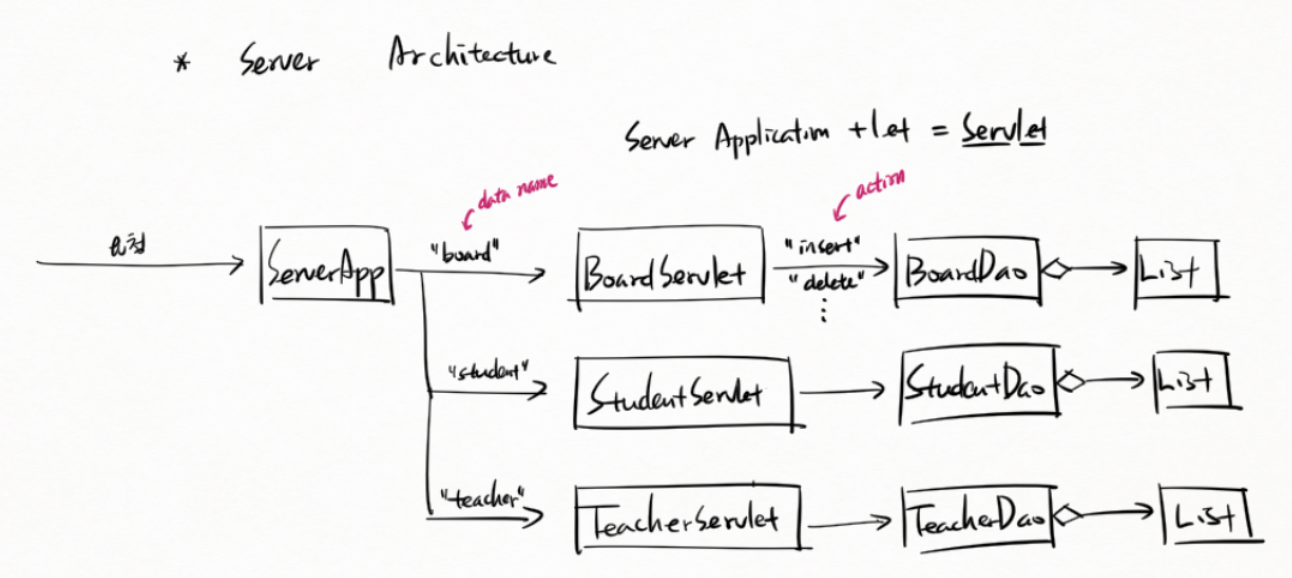 * Server Architecture
Server Application + let = Servlet
data name
action
요청
ServerApp
"board"
BoardServlet
"insert"
"delete"
⋮
BoardDao
List
"student"
StudentServlet
StudentDao
List
"teacher"
TeacherServlet
TeacherDao
List